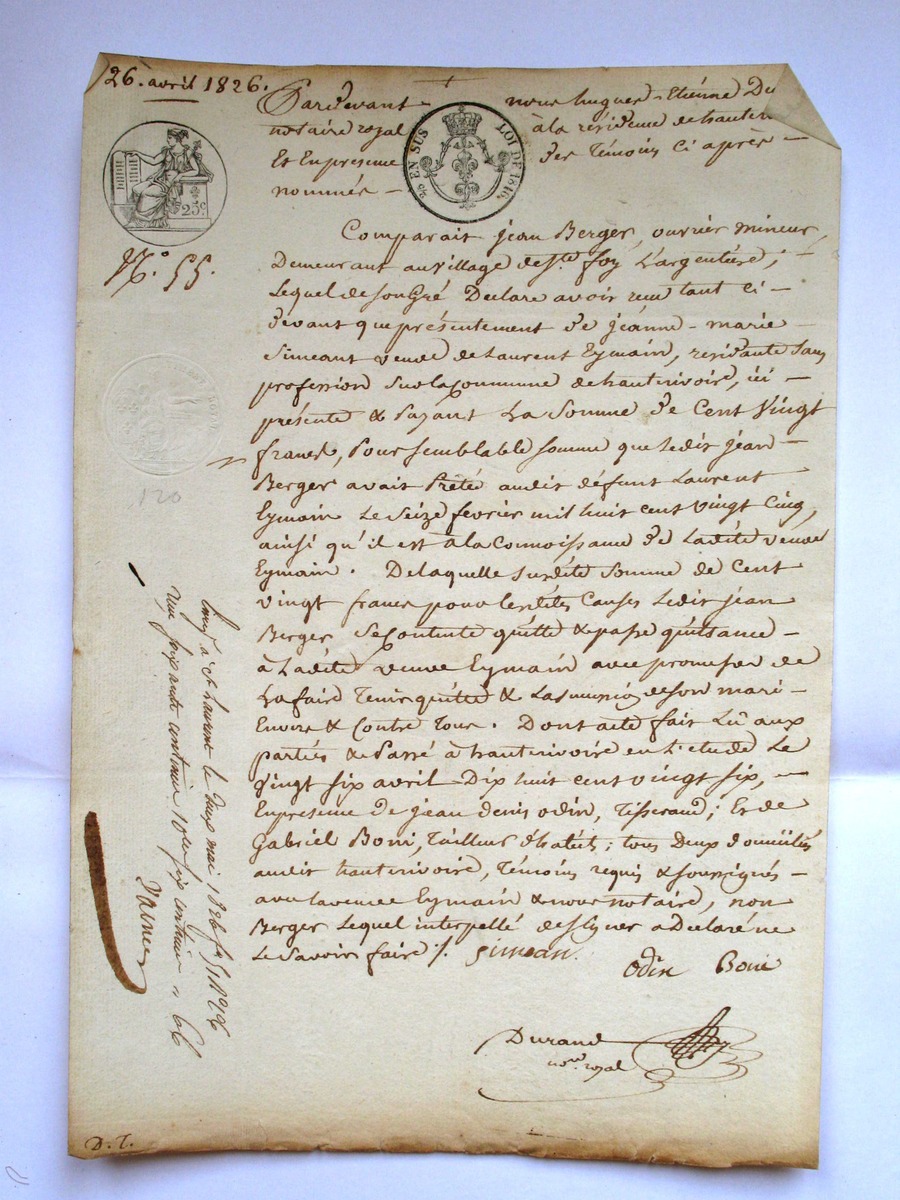 26. avril 1826.
Pardevant nous hugues-Etiénne Du
notaire royal à la résidence de hauteri
Et En présence des Témoins ci après —
nommés —
EN SUS LOI DE 1816.
25 c.
N.° 55.
Comparait jean Berger, ouvrier mineur,
Demeurant au village de Ste foy L'argentière; —
Lequel de son Gré Déclare avoir reçu tant ci —
devant que présentement de jeanne-marie
Simeant veuve de Laurent Eymain, residante sans
profession sur la Commune de hauterivoire, ici —
présente & payant La Somme de Cent Vingt
francs, Pour semblable somme que Ledit jean —
Berger avait Prêté audit défunt Laurent
Eymain Le Seize février mil huit cent vingt Cinq,
ainsi qu'il est à la Connoissance de Ladite veuve
Eymain. De laquelle susdite Somme de Cent
vingt francs pour les dites Causes Ledit jean
Berger Se Contente quitte & passe quittance —
à Ladite veuve Eymain avec promesse de
La faire Tenir quitte & La de son mari —
Envers & Contre Tous. Dont acte fait Lû aux
parties & Passé à hauterivoire en L'etude Le
Vingt six avril Dix huit cent vingt six, —
En présence de jean denis odin, Tisserand; Et de
Gabriel Boni, Tailleur d'habits; tous Deux domiciliés
audit hauterivoire, Témoins requis & soussignés —
avec la veuve Eymain & nous notaire, non
Berger Lequel interpellé de signer a Déclaré ne
Le Savoir faire ./. simean.
odin Boni
Durand
nore. royal
120
à St Laurent le mai 1826
D. T.